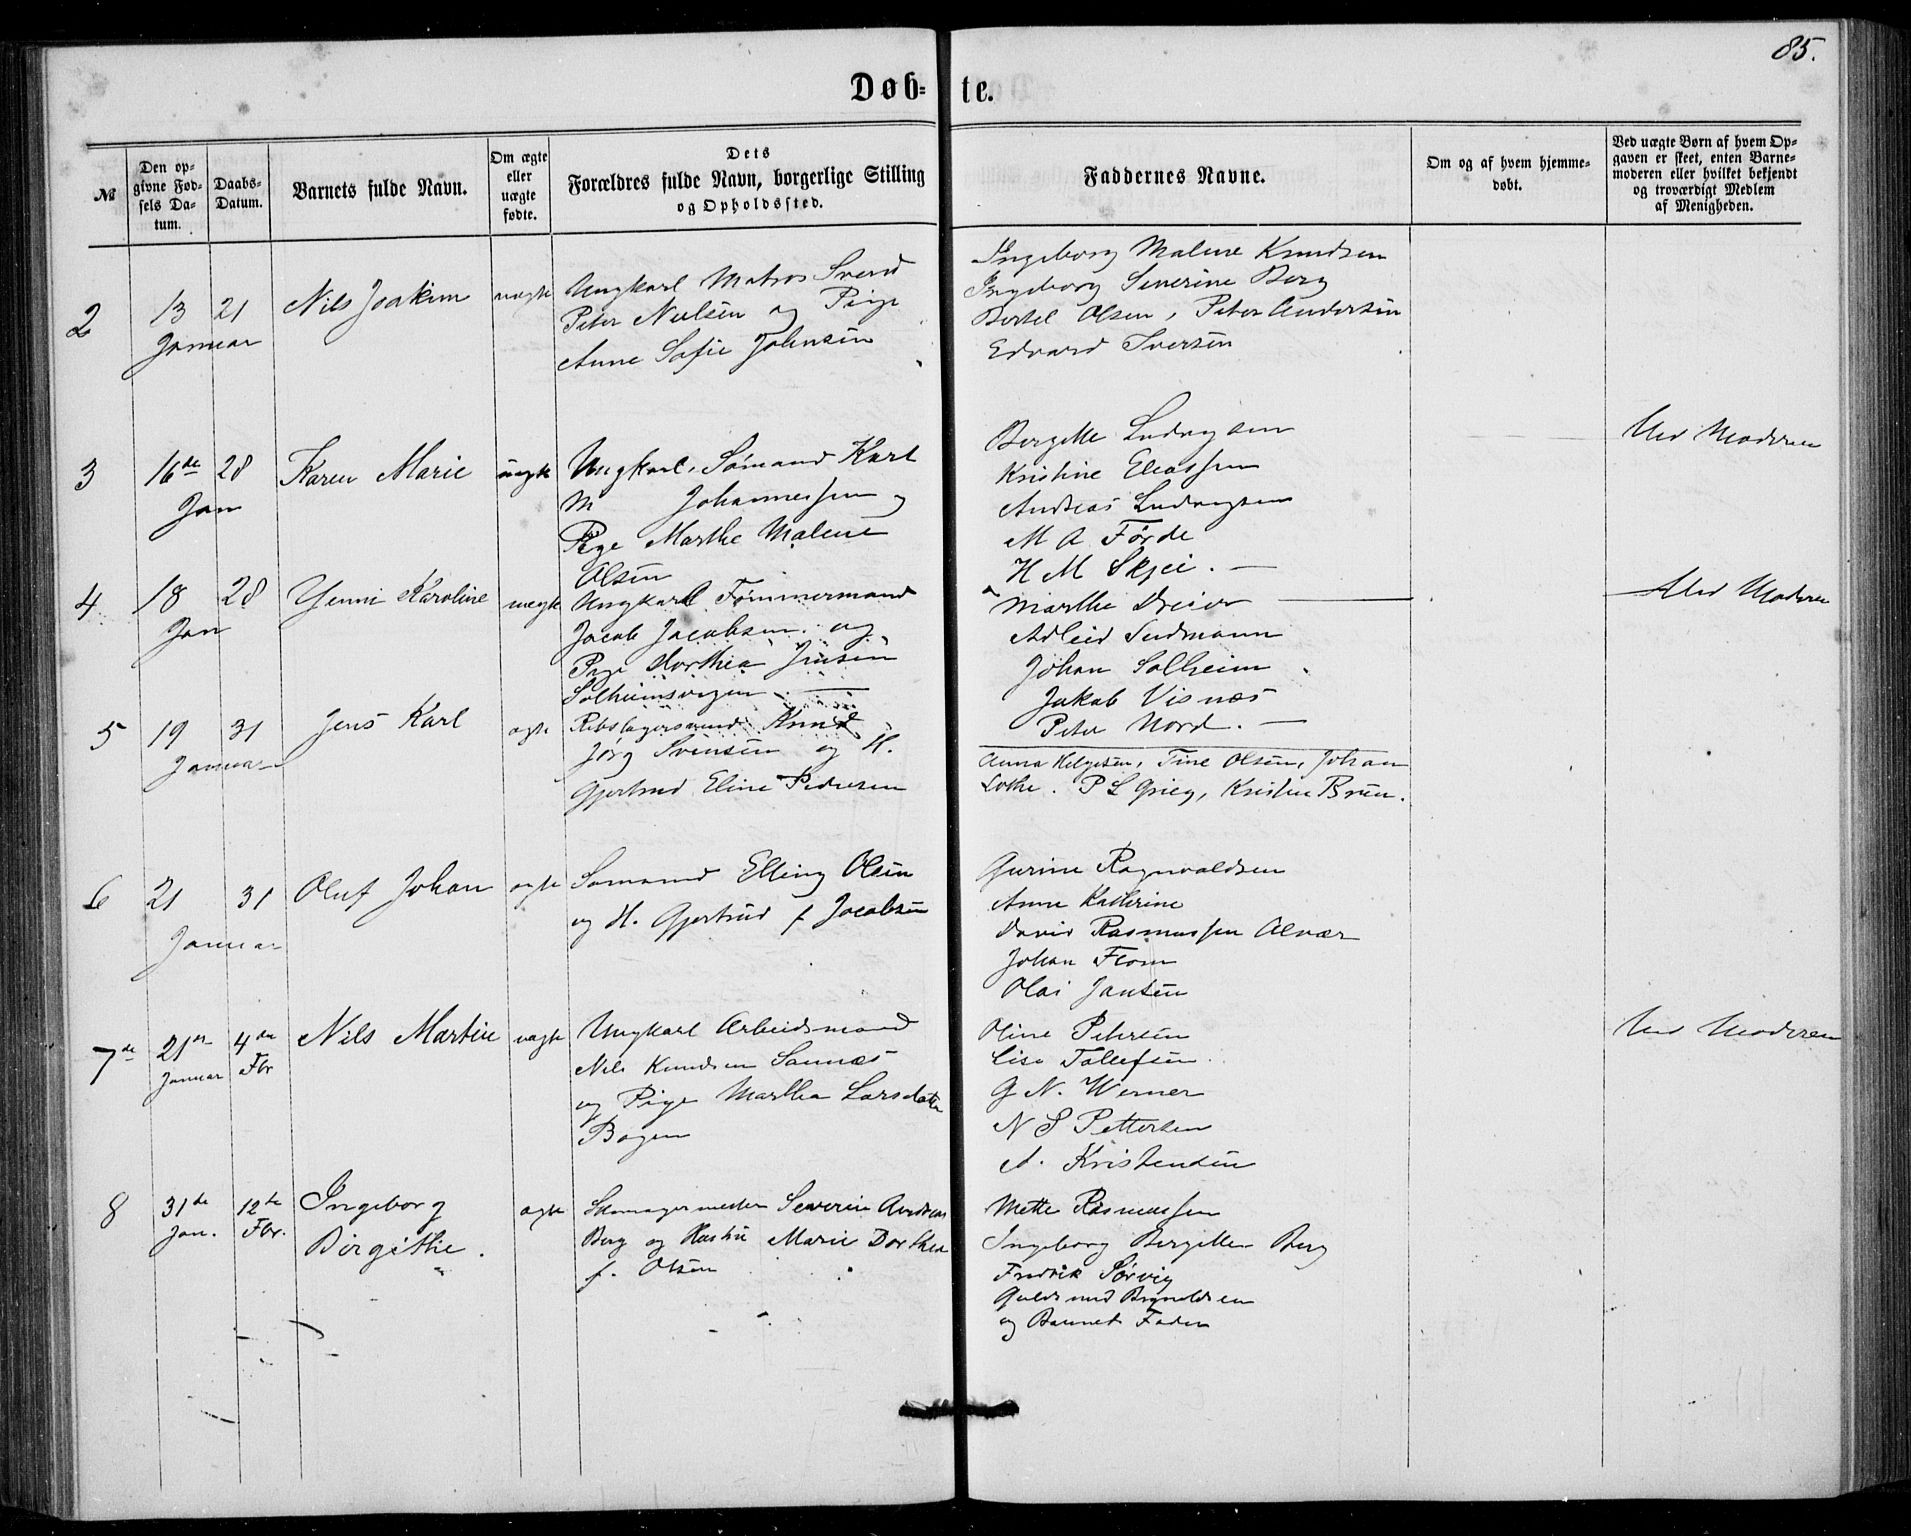 85.
Døb- te.
№
Den opgivne Fødsels Datum.
Daabs-Datum.
Barnets fulde Navn.
Om ægte eller uægte fødte.
Dets Forældres fulde Navn, borgerlige Stilling og Opholdssted.
Faddernes Navne.
Om og af hvem hjemmedøbt.
Ved uægte Børn af hvem Opgaven er skeet, enten Barnemoderen eller hvilket bekjendt og troværdigt Medlem af Menigheden.
2
13 21
Januar
Nils Joakim
uægte
Ungkarl Matros Svend
Peter Nielsen og Pige
Anne Sofie Johnsen
Ingeborg Malene Knudsen
Ingeborg Severine Berg
Bertel Olsen, Peter Andersen
Edvard Iversen
3
16de 28
Jan
Karen Marie
uægte
Ungkarl, Sømand Karl
M Johannessen og
Pige Marthe Malene
Olsen
Bergitte Ludvigsen
Kristine Eliassen
Andreas Ludvigsen
M A Førde
H M Skjei. —
Ved Moderen
4
18 28
Jan
Yenni Karoline
uægte
Ungkarl Tømmermand
Jacob Jacobsen og
Pige Dorthea Jensen
Solheimsvigen
Marthe Dreier
Adleid Sudmann
Johan Solheim
Jakob Visnæs
Peter Nord. —
Ved Moderen
5
19 31
Januar
Jens Karl
ægte
Rebslagersvend Knud
Jørg Svensen og H.
Gjertrud Eline Pedersen
Anna Helgesen, Tine Olsen, Johan
Lothe. P L Grieg, Kristine Brun.
6
21 31
Januar
Oluf Johan
ægte
Sømand Elling Olsen
og H. Gjertrud f Jacobsen
Gurine Ragnvaldsen
Anne Kathrine
David Rasmussen Alvær
Johan Flom
Olai Jansen
7de
21de 4de
Januar Fbr
Nils Martin
uægte
Ungkarl Arbeidsmand
Nils Knudsen Sannæs
og Pige Martha Larsdatter
Bogen
Oline Petersen
Lise Tollefsen
G N. Werner
N S Pettersen
A. Kristensen
Ved Moderen
8
31de 12te
Jan. Fbr.
Ingeborg
Birgithe.
ægte
Skomagermester Severin Andreas
Berg og Hustru Marie Dorthea
f. Olsen
Mette Rasmussen
Ingeborg Bergitte Berg
Fredrik Sørvig
og Barnets Fader